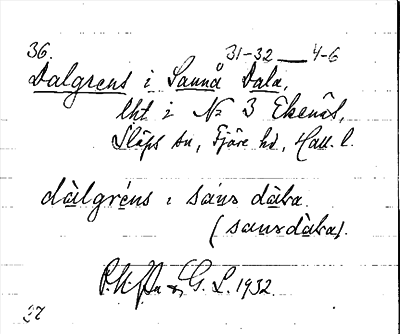 36.
31-32 — 4-6
Dalgrens i Sannå Dala,
lht i No 3 Ekenäs,
Släps sn, Fjäre hd, Hall. l.
dàlgréns i sáns dàba
(sansdàba).
& G. L. 1932.
37